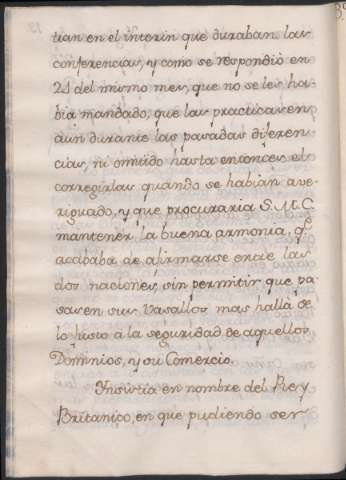 tian en el interin que duraban las
conferencias, y como se respondiò en
21 del mismo mes, que no se les ha-
bia mandado, que las practicasen,
aùn durante las pasadas diferen-
cias, ni omitido hasta entonces el
corregirlas quando se habian ave-
riguado, y que procuraria S.M.C.
mantener la buena armonia, q.e
acababa de afirmarse entre las
dos naciones, sin permitir que pa-
sasen sus Vasallos mas hallà de
lo justo a la seguridad de aquellos
Dominios, y su Comercio.
Insistia en nombre del Rey
Britanico, en que pudiendo ser